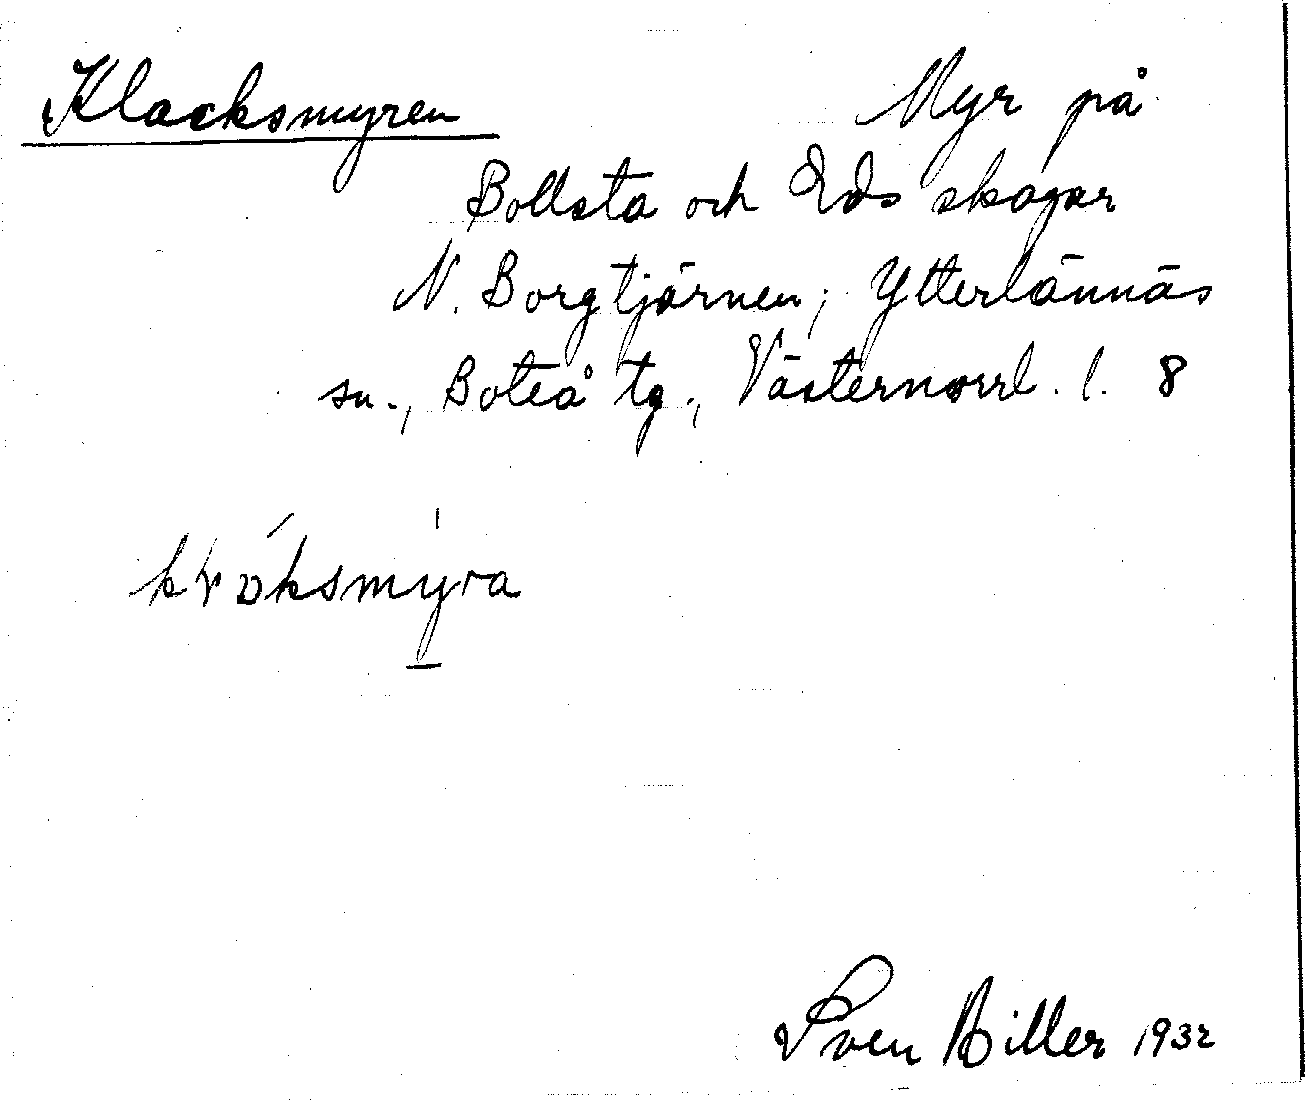 Klacksmyren Myr på
Bollsta och Eds skogar
N. Borgtjärnen; Ytterlännäs
sn., Boteå tg., Västernorrl. l. 8
Sven Biller 1932